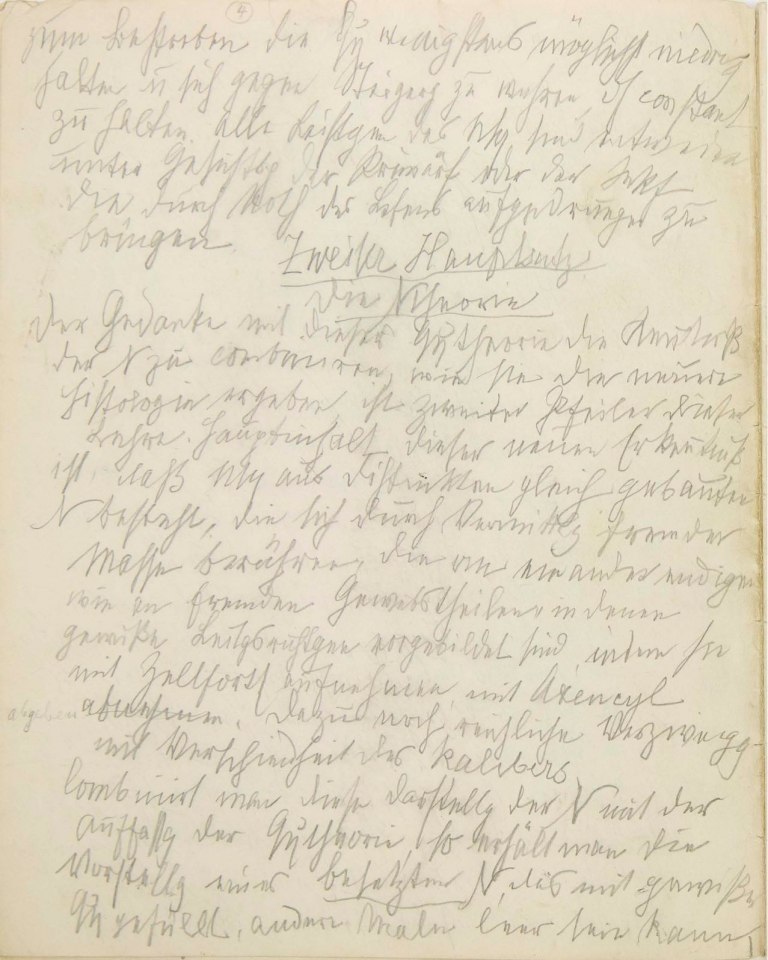 4
zum Bestreben die Qη wenigstens möglichst niedrig
halten u sich gegen Steigerg zu wehren, dh constant
zu halten. Alle Leistgen des Nsy sind entweder
unter Gesichtsp der Primärf oder der Sekf
die durch Noth des Lebens aufgedrungen zu
bringen.
Zweiter Hauptsatz
Die Ntheorie
Der Gedanke mit dieser Qηtheorie die Kenntniß
der N zu combiniren, wie sie die neuere
Histologie ergeben, ist zweiter Pfeiler dieser
Lehre. Hauptinhalt dieser neuen Erkenntniß
ist, daß Nsy aus distinkten gleich gebauten
N besteht, die sich durch Vermittlg fremder
Masse berühren, die an einander endigen
wie an fremden Gewebstheilen, in denen
gewiße Leitgsrichtgen vorgebildet sind, indem sie
mit Zellforts aufnehmen, mit Axencyl
abgeben abnehmen. Dazu noch reichliche Verzweigg
mit Verschiedenheit des Kalibers
Combinirt man diese Darstellg der N mit der
Auffassg der Qηtheorie so erhält man die
Vorstellg eines besetzten N, das mit gewißer
Qη gefüllt, andere Male leer sein kann.